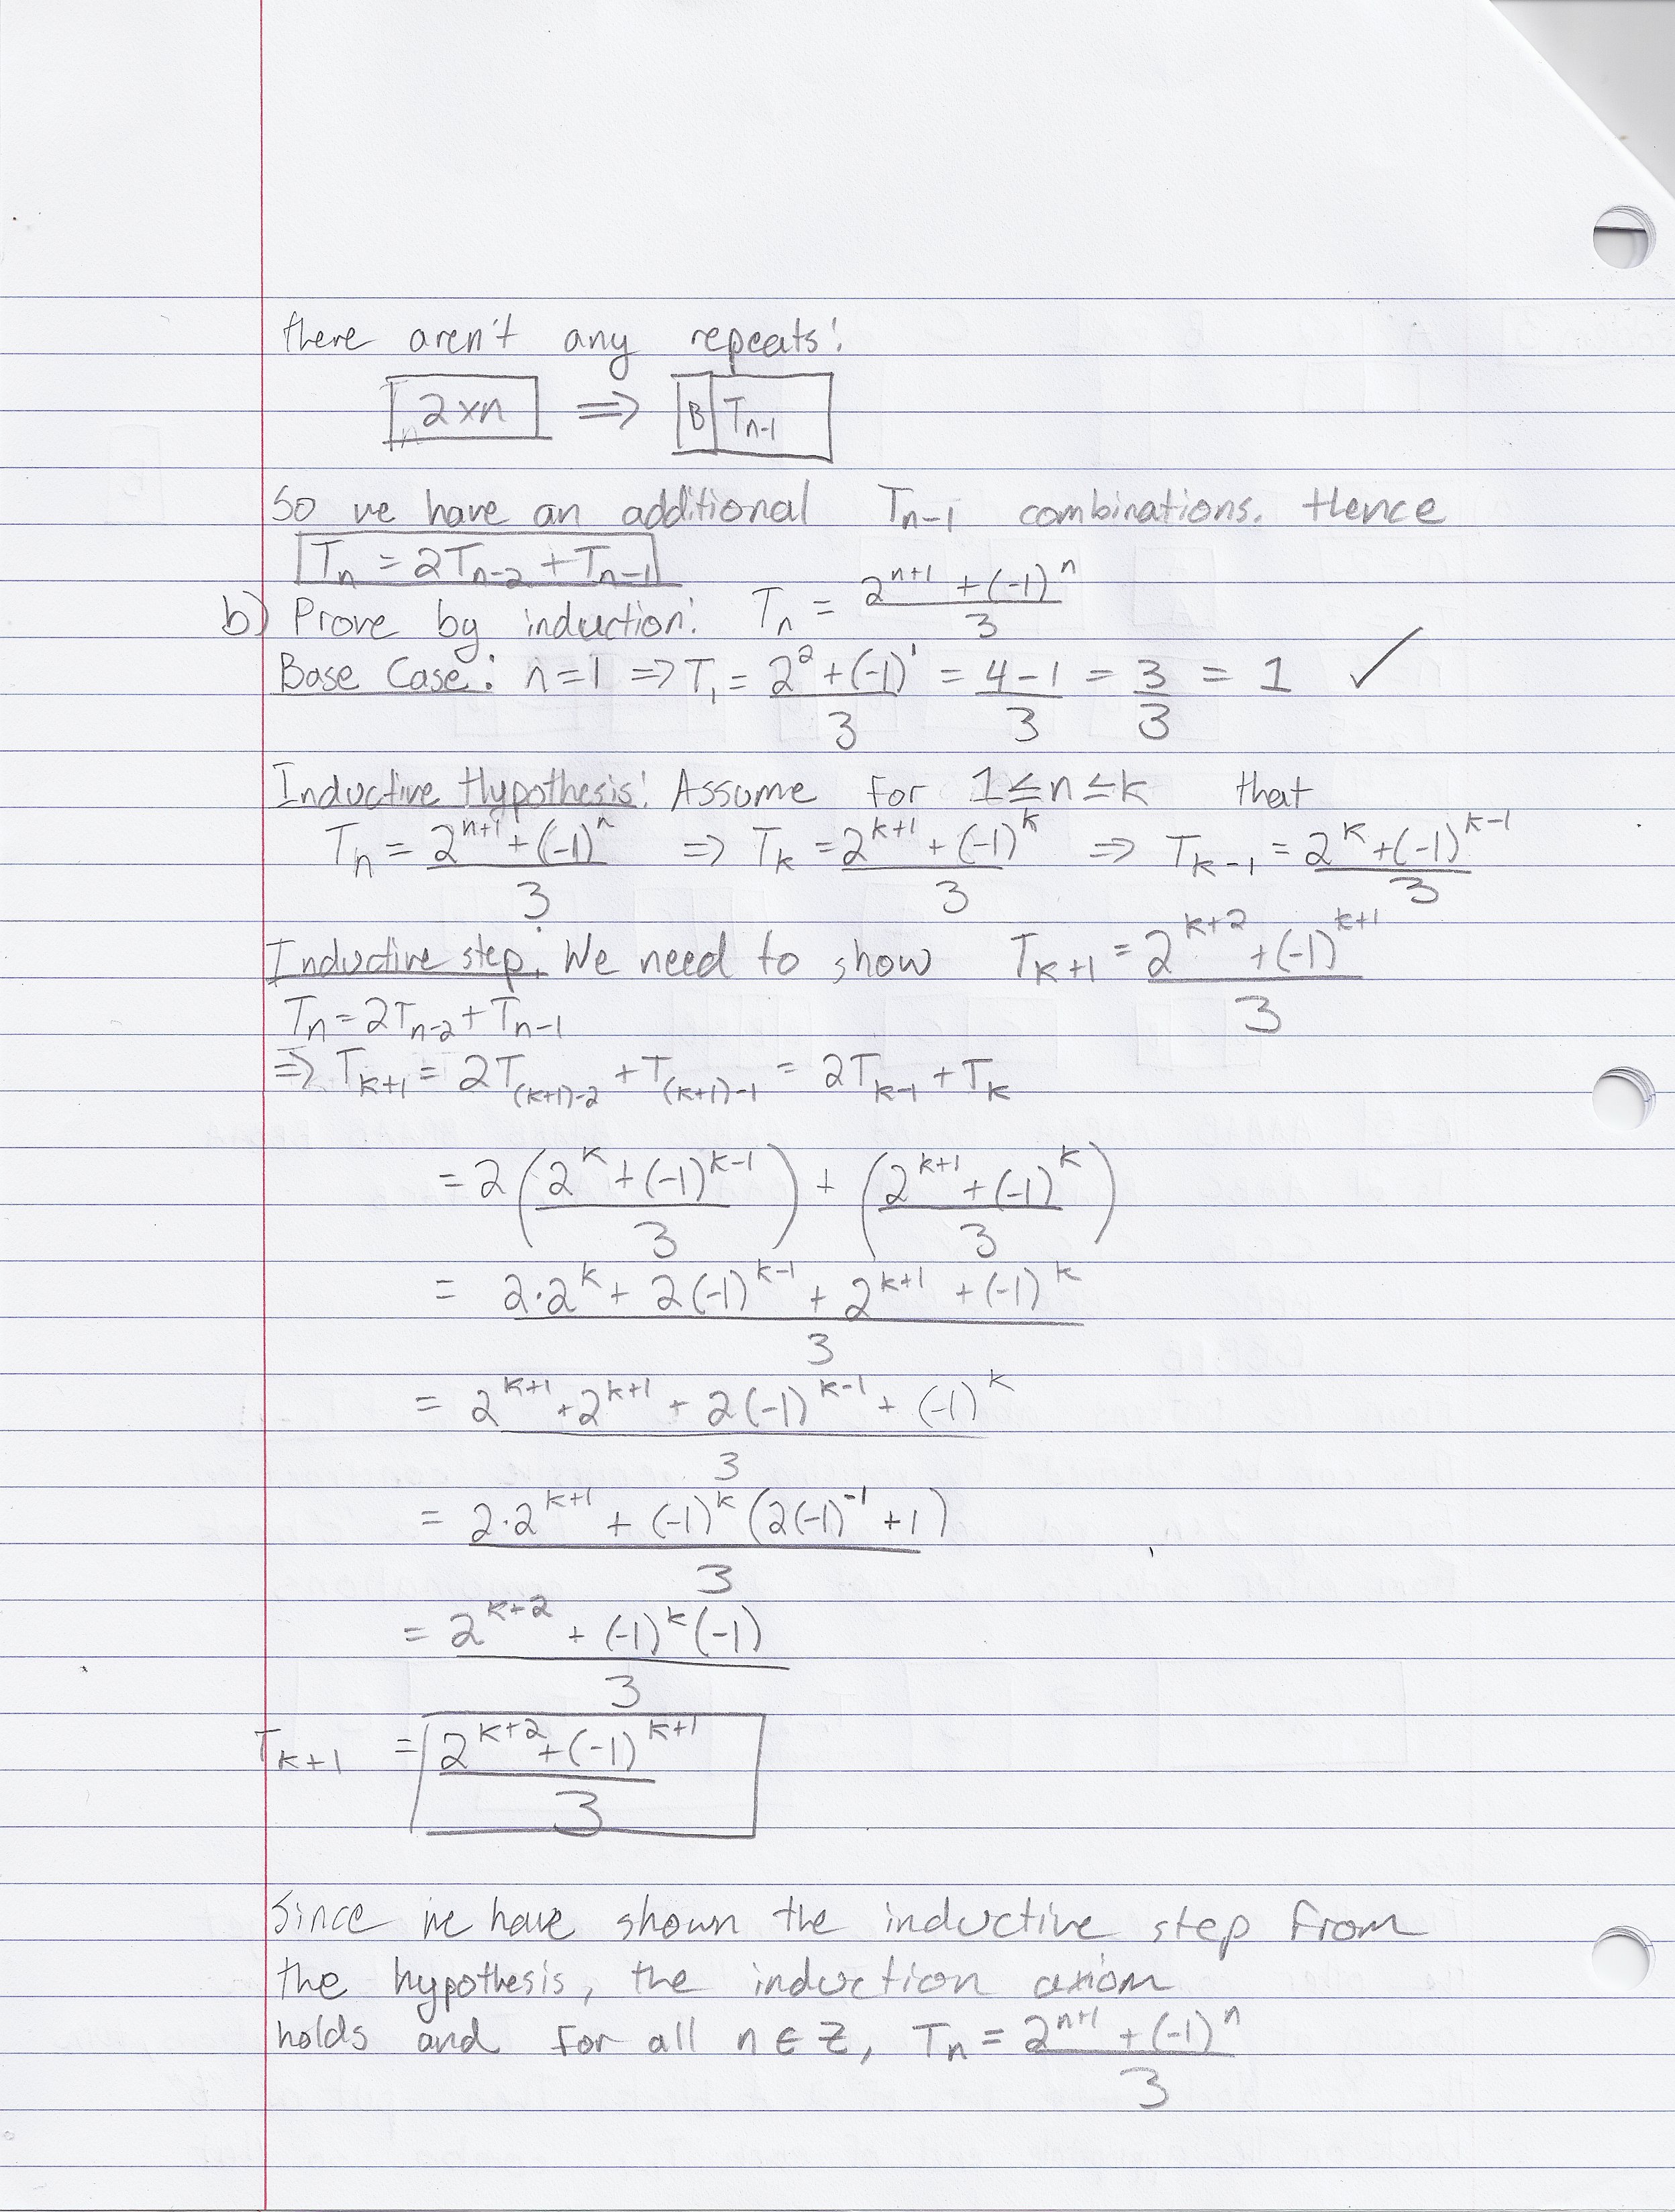 there aren't any repeats:
T_n 2×n ⇒ B T_{n-1}
So we have an additional T_{n-1} combinations. Hence
T_n = 2T_{n-2} + T_{n-1}
b) Prove by induction: T_n = (2^{n+1} + (-1)^n)/3
Base Case: n=1 ⇒ T_1 = (2^2 + (-1)^1)/3 = (4-1)/3 = 3/3 = 1 ✓
Inductive Hypothesis: Assume for 1≤n≤k that
T_n = (2^{n+1} + (-1)^n)/3 ⇒ T_k = (2^{k+1} + (-1)^k)/3 ⇒ T_{k-1} = (2^k + (-1)^{k-1})/3
Inductive step: We need to show T_{k+1} = (2^{k+2} + (-1)^{k+1})/3
T_n = 2T_{n-2} + T_{n-1}
⇒ T_{k+1} = 2T_{(k+1)-2} + T_{(k+1)-1} = 2T_{k-1} + T_k
= 2((2^k + (-1)^{k-1})/3) + ((2^{k+1} + (-1)^k)/3)
= (2·2^k + 2(-1)^{k-1} + 2^{k+1} + (-1)^k)/3
= (2^{k+1} + 2^{k+1} + 2(-1)^{k-1} + (-1)^k)/3
= (2·2^{k+1} + (-1)^k (2(-1)^{-1} + 1))/3
= (2^{k+2} + (-1)^k (-1))/3
T_{k+1} = (2^{k+2} + (-1)^{k+1})/3
Since we have shown the inductive step from
the hypothesis, the induction axiom
holds and for all n ∈ Z, T_n = (2^{n+1} + (-1)^n)/3